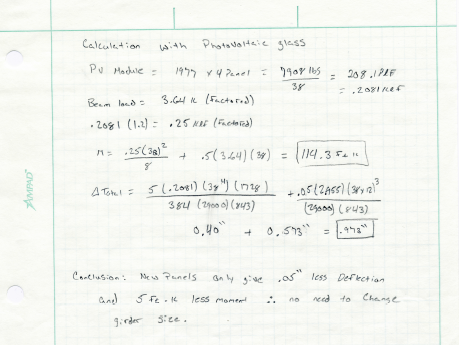 Calculation with Photovoltaic glass
PV Module = 1977 x 4 Panel = 7908 lbs / 38 = 208.1 PLF
= .2081 KLF
Beam load = 3.64 k (Factored)
.2081 (1.2) = .25 KLF (Factored)
M = .25(38)² / 8 + .5(3.64)(38) = 114.3 ft k
Δ Total = 5(.2081)(38⁴)(1728) / 384(29000)(843) + .05(2.455)(38x12)³ / (29000)(843)
0.40" + 0.573" = .973"
Conclusion: New Panels only give .05" less Deflection
and 5 ft. k less moment ∴ no need to Change
girder size.